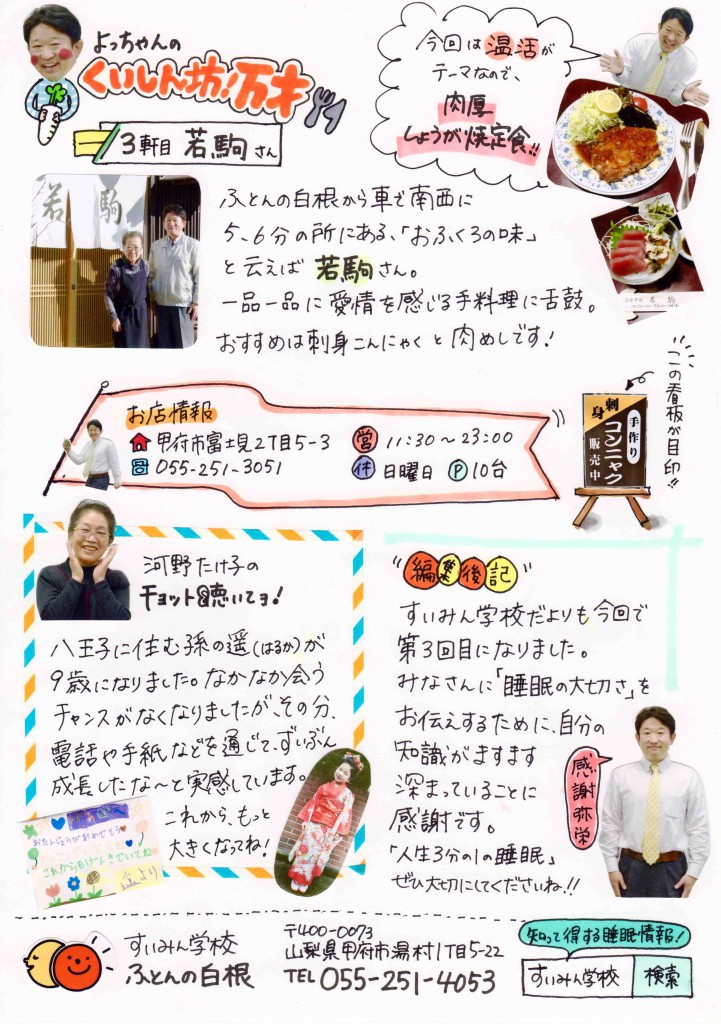 よっちゃんの
くいしん坊!万才
3軒目 若駒さん
今回は温活が
テーマなので、
肉厚
しょうが焼定食!!
若駒
ふとんの白根から車で南西に
5、6分の所にある、「おふくろの味」
と云えば 若駒さん。
一品一品に愛情を感じる手料理に舌鼓。
おすすめは刺身こんにゃくと肉めしです!
この看板が目印!!
お店情報
甲府市富士見2丁目5-3
055-251-3051
営 11:30〜23:00
休 日曜日 P 10台
手作り
刺身
コンニャク
販売中
河野たけ子の
チョット聴いてヨ!
八王子に住む孫の遥(はるか)が
9歳になりました。なかなか会う
チャンスがなくなりましたが、その分、
電話や手紙などを通じて、ずいぶん
成長したな〜と実感しています。
これから、もっと
大きくなってね!
おたんじょうびおめでとう
これからもげんきでいてね
"編集後記"
すいみん学校だよりも今回で
第3回目になりました。
みなさんに「睡眠の大切さ」を
お伝えするために、自分の
知識がますます
深まっていることに
感謝です。
「人生3分の1の睡眠」
ぜひ大切にしてくださいね!!
感謝弥栄
すいみん学校
ふとんの白根
〒400-0073
山梨県甲府市湯村1丁目5-22
TEL 055-251-4053
知って得する睡眠情報!
すいみん学校 検索